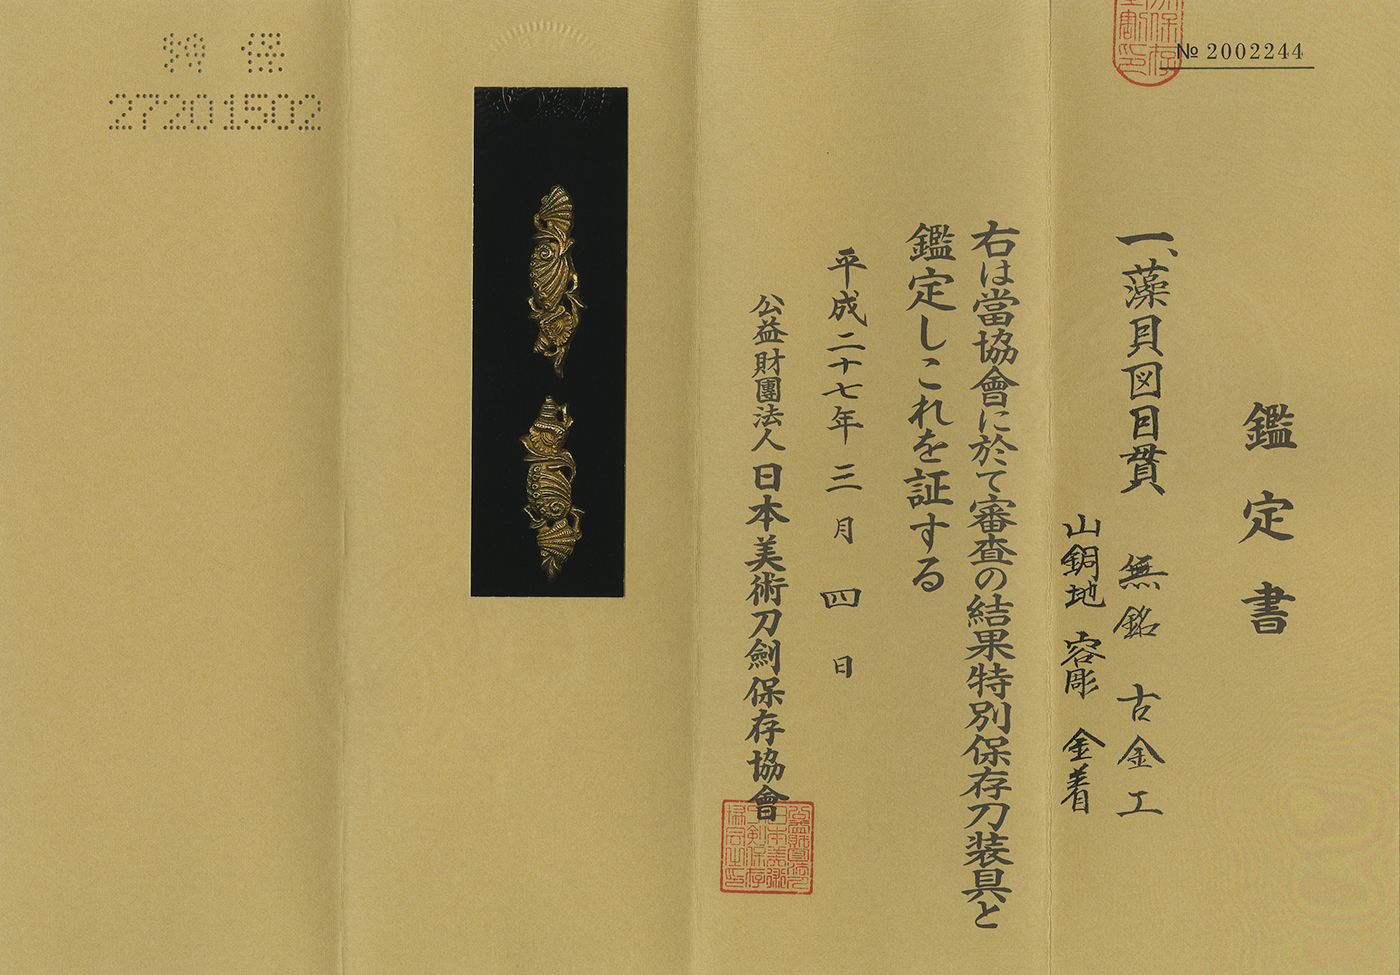 № 2002244
鑑定書
一、藻貝図目貫 無銘 古金工
山銅地 容彫 金着
右は當協會に於て審査の結果特別保存刀装具と
鑑定しこれを証する
平成二十七年三月四日
公益財團法人日本美術刀劍保存協會
特保
27201502